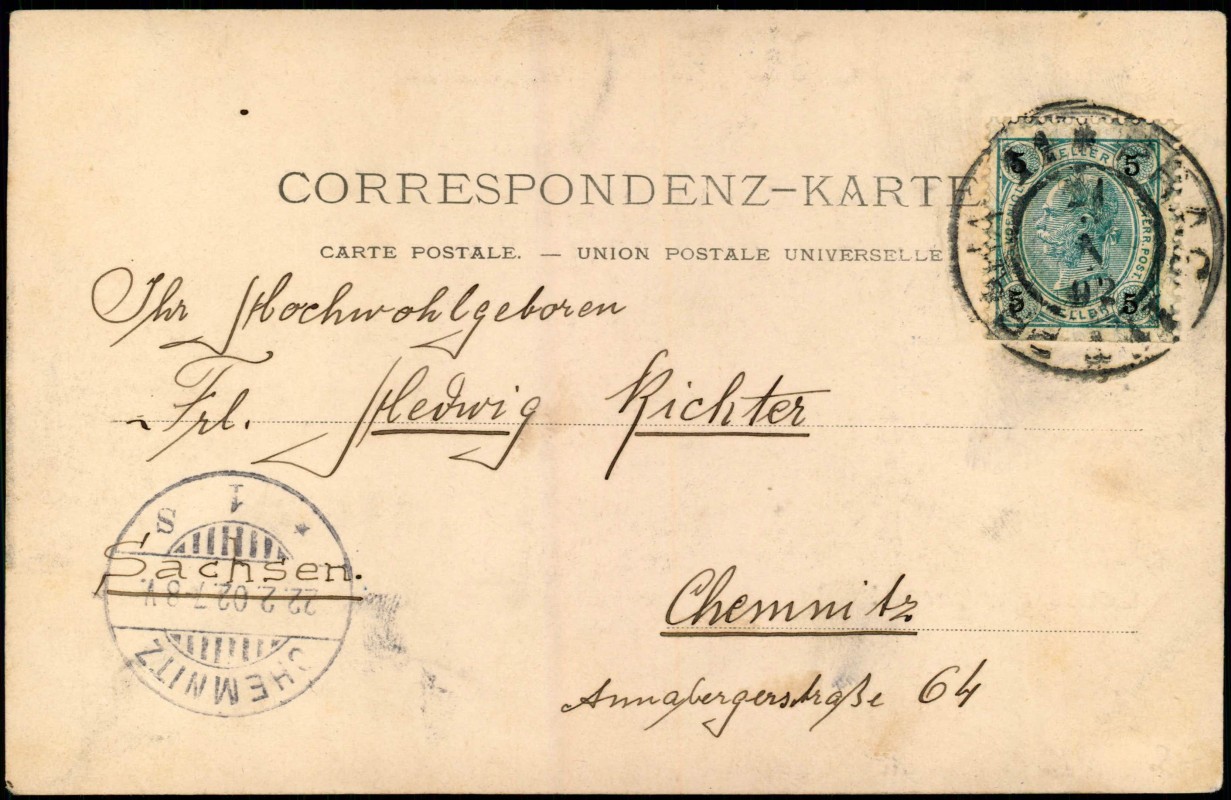 CORRESPONDENZ-KARTE
CARTE POSTALE. — UNION POSTALE UNIVERSELLE
Ihr Hochwohlgeboren
Frl. Hedwig Richter
Sachsen.
Chemnitz
Annabergerstraße 64
5 5
5 5
21
2
02
1
S
22.2.02.7-8V.
CHEMNITZ